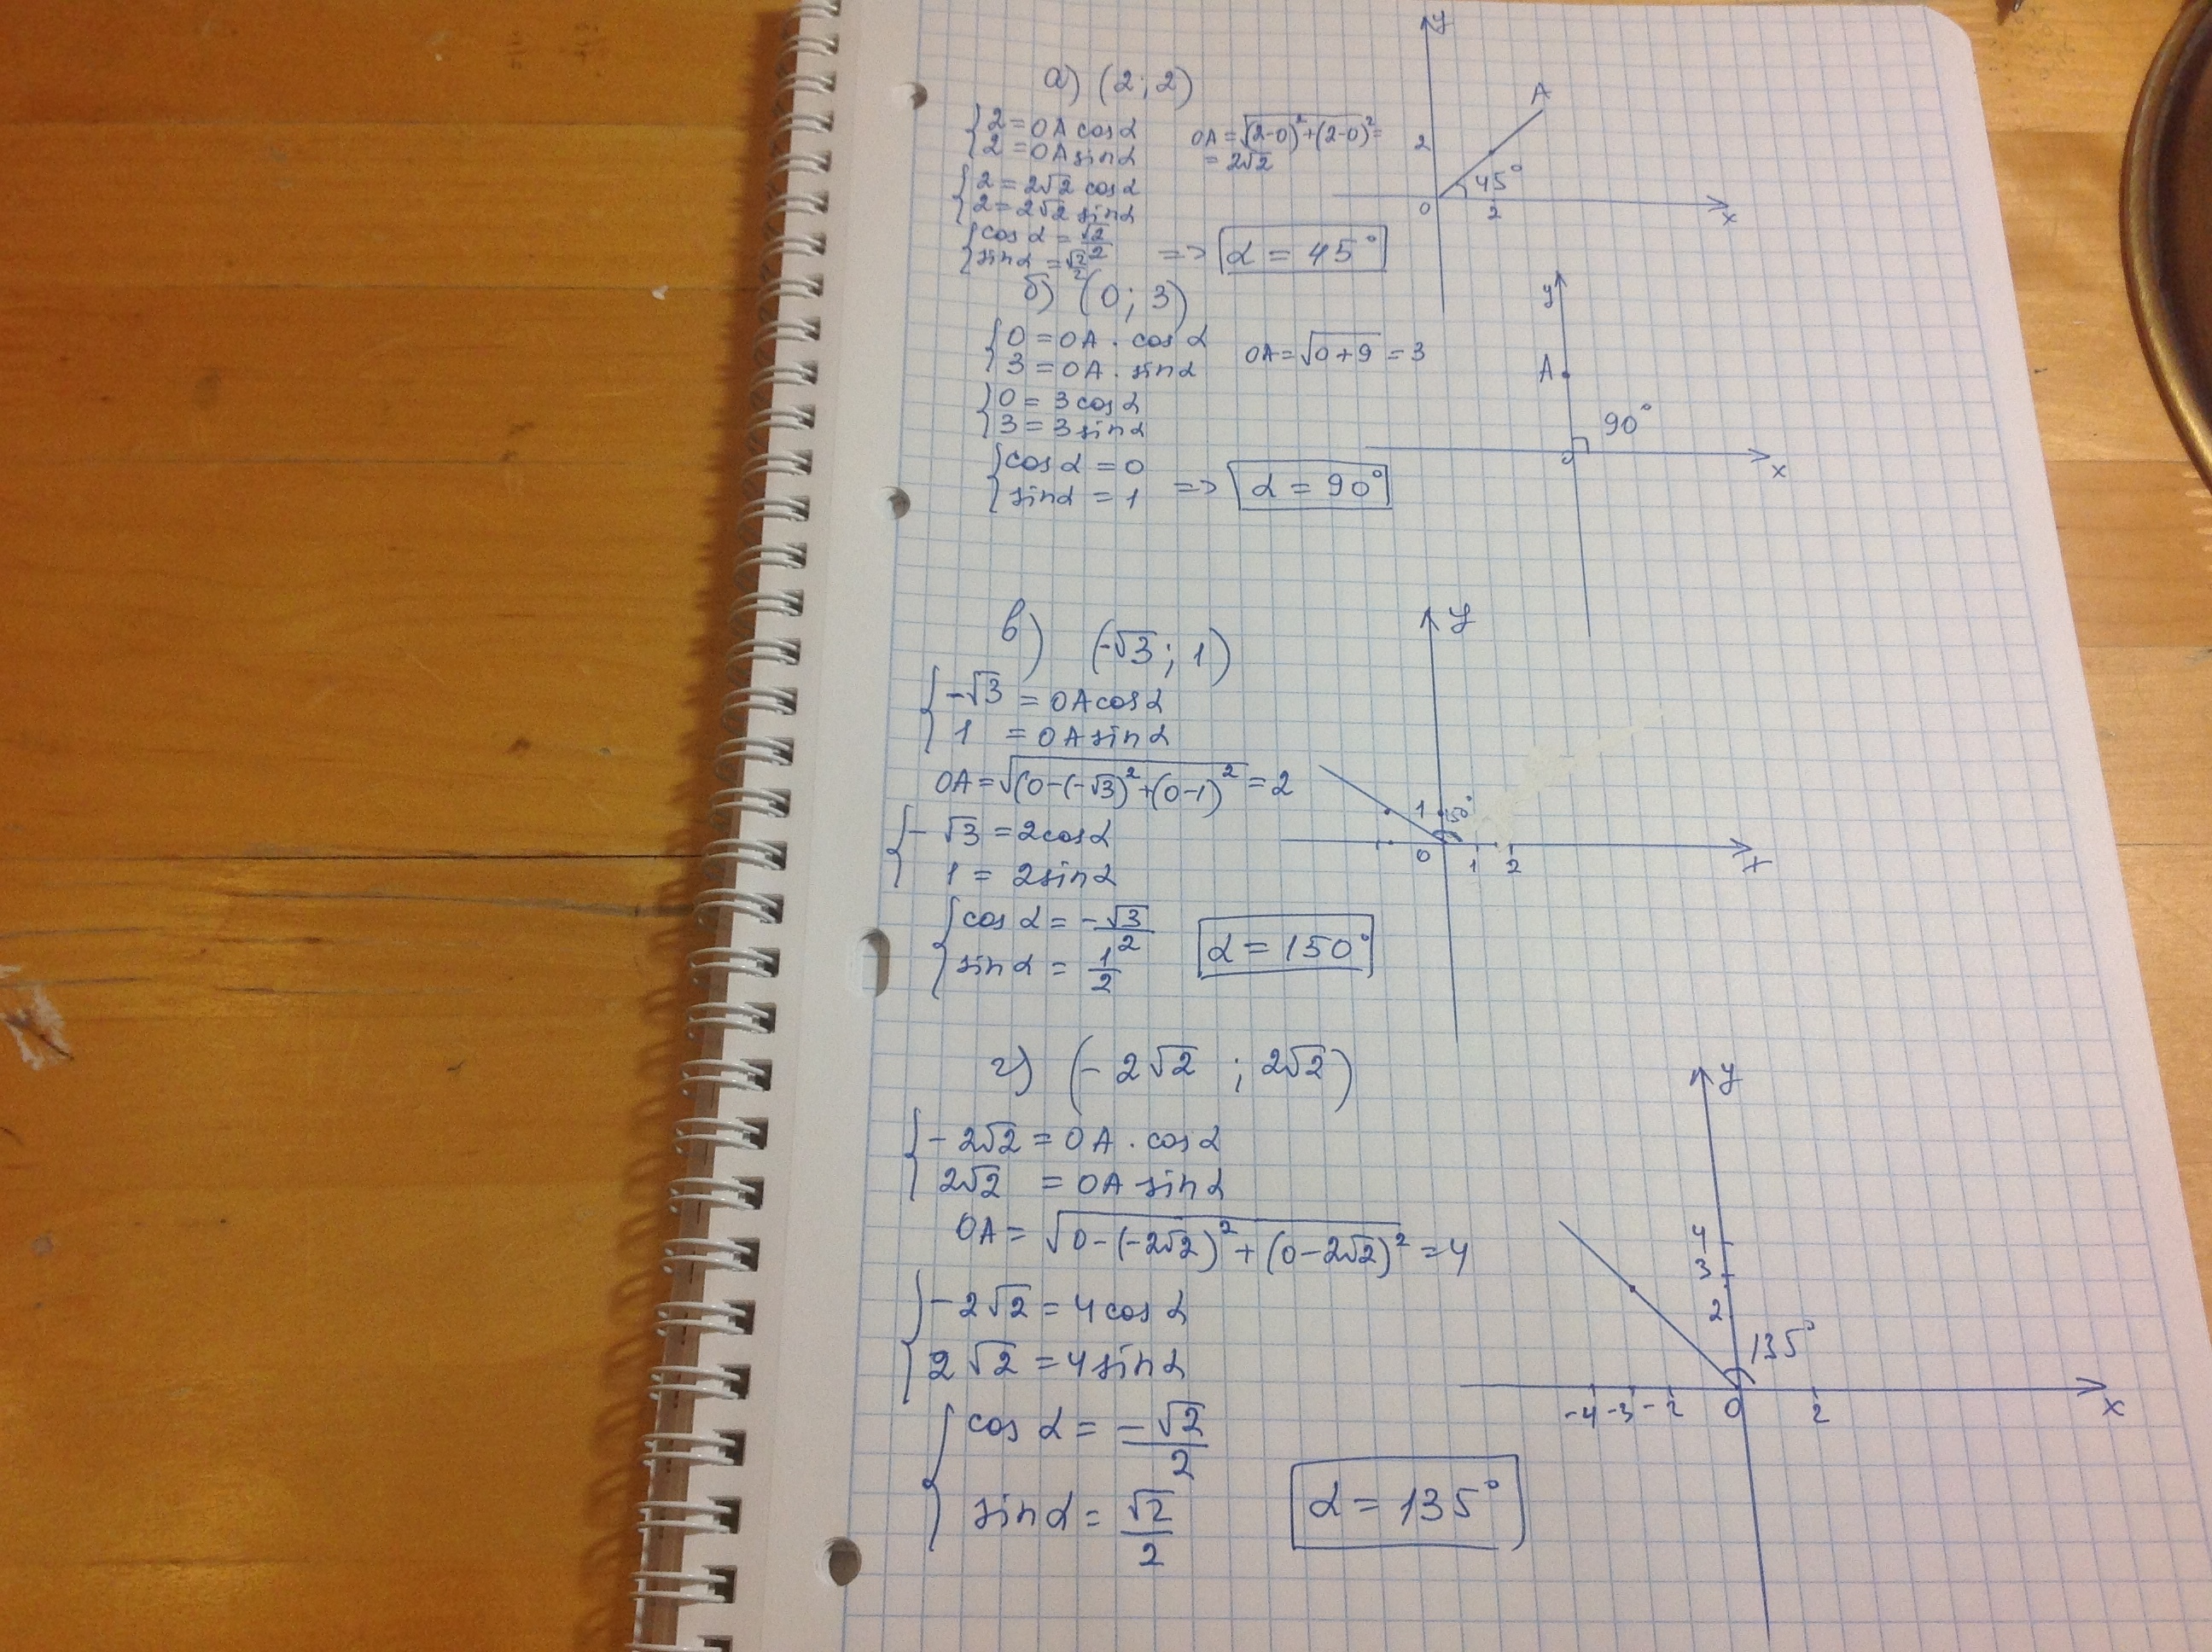 а) (2; 2)
{2 = OA cosα
2 = OA sinα
OA = √(2-0)²+(2-0)² =
= 2√2
{2 = 2√2 cosα
2 = 2√2 sinα
{cosα = √2/2
sinα = √2/2
=> α = 45°
y
A
2
45°
0
2
x
б) (0; 3)
{0 = OA · cosα
3 = OA · sinα
OA = √0+9 = 3
{0 = 3cosα
3 = 3sinα
{cosα = 0
sinα = 1
=> α = 90°
y
A
90°
0
x
в) (-√3; 1)
{-√3 = OA cosα
1 = OA sinα
OA = √(0-(-√3)²+(0-1)² = 2
{-√3 = 2cosα
1 = 2sinα
{cosα = -√3/2
sinα = 1/2
α = 150°
y
1
150°
0
1
2
x
г) (-2√2 ; 2√2)
{-2√2 = OA · cosα
2√2 = OA sinα
OA = √0-(-2√2)²+(0-2√2)² = 4
{-2√2 = 4cosα
2√2 = 4sinα
{cosα = -√2/2
sinα = √2/2
α = 135°
y
4
3
2
135°
-4 -3 -2 0 2
x